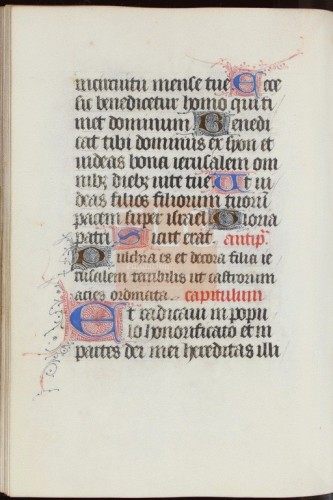 in circuitu mense tue Ecce
sic benedicetur homo qui ti
met dominum Benedi
cat tibi dominus ex syon et
uideas bona ierusalem om
nibz diebz uite tue Ut ui
deas filios filiorum tuorum
pacem super israel Gloria
patri Sicut erat. antiph.
Pulchra es et decora filia ie
rusalem terribilis ut castrorum
acies ordinata. capitulum
Et radicaui in popu
lo honorificato et in
partes dei mei hereditas illi